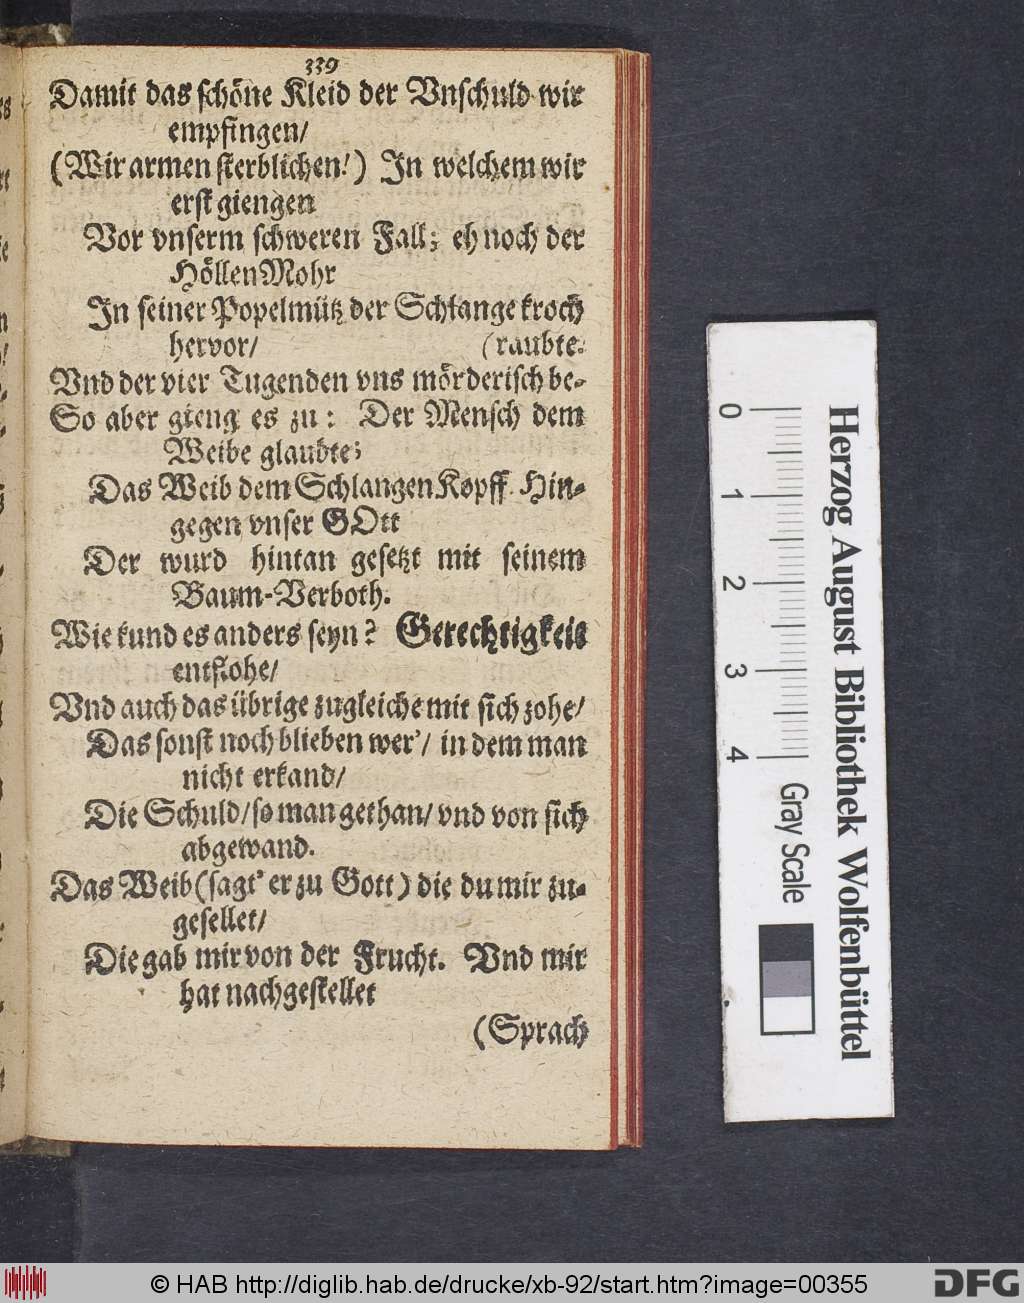 339
Damit das schöne Kleid der Vnschuld wir
empfingen/
(Wir armen sterblichen!) In welchem wir
erst giengen
Vor vnserm schweren Fall; eh noch der
Höllen Mohr
In seiner Popelmütz der Schlange kroch
hervor/ (raubte.
Vnd der vier Tugenden vns mörderisch be-
So aber gieng es zu: Der Mensch dem
Weibe glaubte;
Das Weib dem Schlangen Kopff. Hin-
gegen vnser GOtt
Der wurd hintan gesetzt mit seinem
Baum-Verboth.
Wie kund es anders seyn? Gerechtigkeit
entflohe/
Vnd auch das übrige zugleiche mit sich zohe/
Das sonst noch blieben wer'/ in dem man
nicht erkand/
Die Schuld/ so man gethan/ vnd von sich
abgewand.
Das Weib (sagt' er zu Gott) die du mir zu-
gesellet/
Die gab mir von der Frucht. Vnd mir
hat nachgestellet
(Sprach
0
1
2
3
4
Gray Scale
Herzog August Bibliothek Wolfenbüttel
© HAB http://diglib.hab.de/drucke/xb-92/start.htm?image=00355
DFG